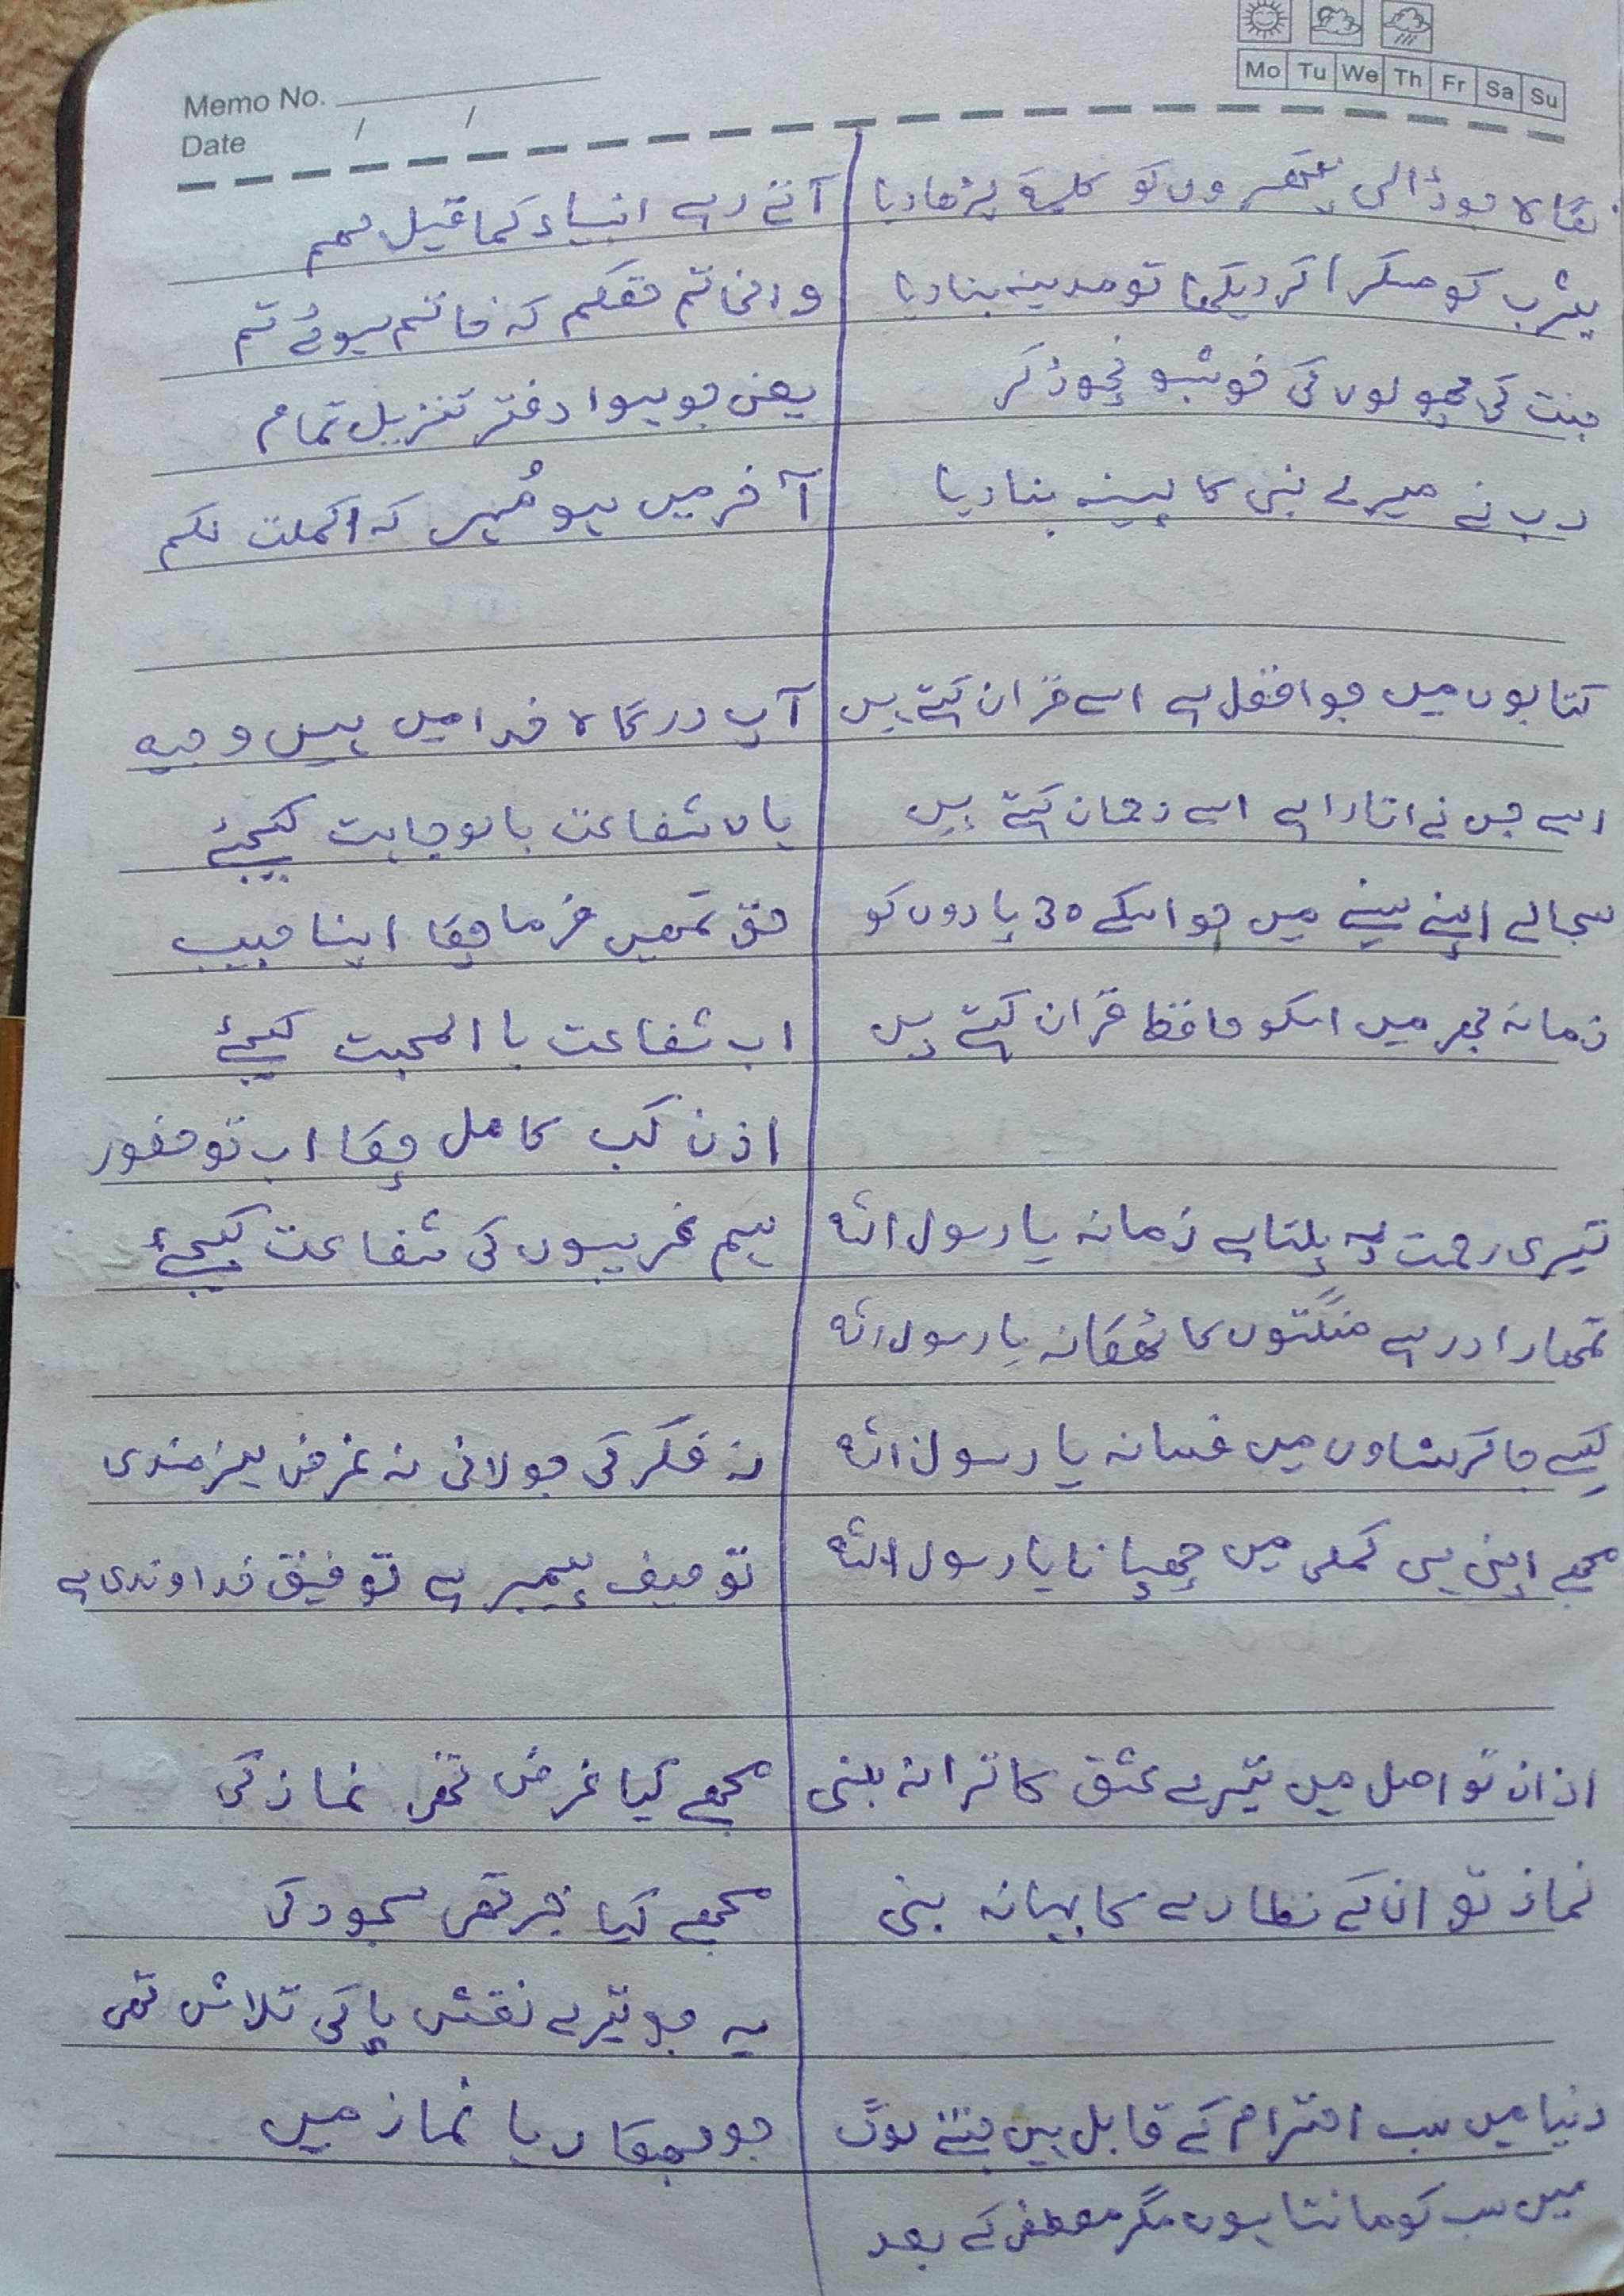 Memo No.
Date / /
Mo Tu We Th Fr Sa Su
نگاہ جو ڈالی پتھروں کو کلمہ پڑھا دیا
یثرب کو مسکرا کر دیکھا تو مدینہ بنا دیا
جنت کی پھولوں کی خوشبو نچوڑ کر
رب نے میرے نبی کا پسینہ بنا دیا
کتابوں میں جو افضل ہے اسے قران کہتے ہیں
اسے جس نے اتارا ہے اسے رحمان کہتے ہیں
سجالے اپنے سینے میں جو اسکے 30 پاروں کو
زمانہ بھر میں اسکو حافظ قران کہتے ہیں
تیری رحمت پہ پلتا ہے زمانہ یا رسول اللہ
تمھارا در ہے منگتوں کا ٹھکانہ یا رسول اللہ
کہے جا کر سناوں میں فسانہ یا رسول اللہ
مجھے اپنی ہی کملی میں چھپانا یا رسول اللہ
اذان تو اصل میں تیرے عشق کا ترانہ بنی
نماز تو ان کے نظارے کا بہانہ بنی
دنیا میں سب احترام کے قابل ہیں جتنے لوگ
میں سب کو مانتا ہوں مگر مصطفی کے بعد
آتے رہے انبیاء کما قیل لھم
و الخاتم حقکم کہ خاتم ہوئے تم
یعنی جو ہوا دفتر تنزیل تمام
آخر میں ہو مُہر کہ اکملت لکم
آپ درگاہ خدا میں ہیں وجیہ
ہاں شفاعت بالوجاہت کیجئے
حق تمھیں فرما چکا اپنا حبیب
اب شفاعت با المحبت کیجئے
اذن کب کا مل چکا اب تو حضور
ہم غریبوں کی شفاعت کیجئے
نہ فکر کی جولانی نہ غرض ہنرمندی
توصیف پیمبر ہے توفیق خداوندی ہے
مجھے کیا غرض تھی نماز کی
مجھے کیا خبر تھی سجود کی
یہ جو تیرے نقش پا کی تلاش تھی
جو جھکا دیا نماز میں